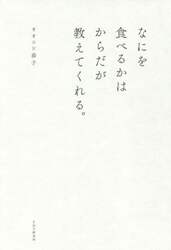 なにを
食べるかは
からだが
教えてくれる。